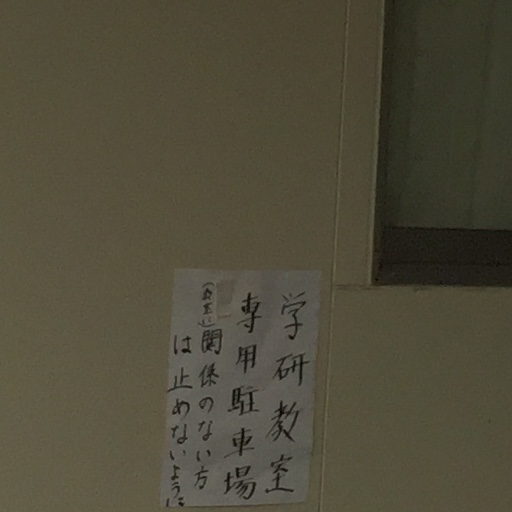 学研教室
専用駐車場
関係のない方
は止めないように